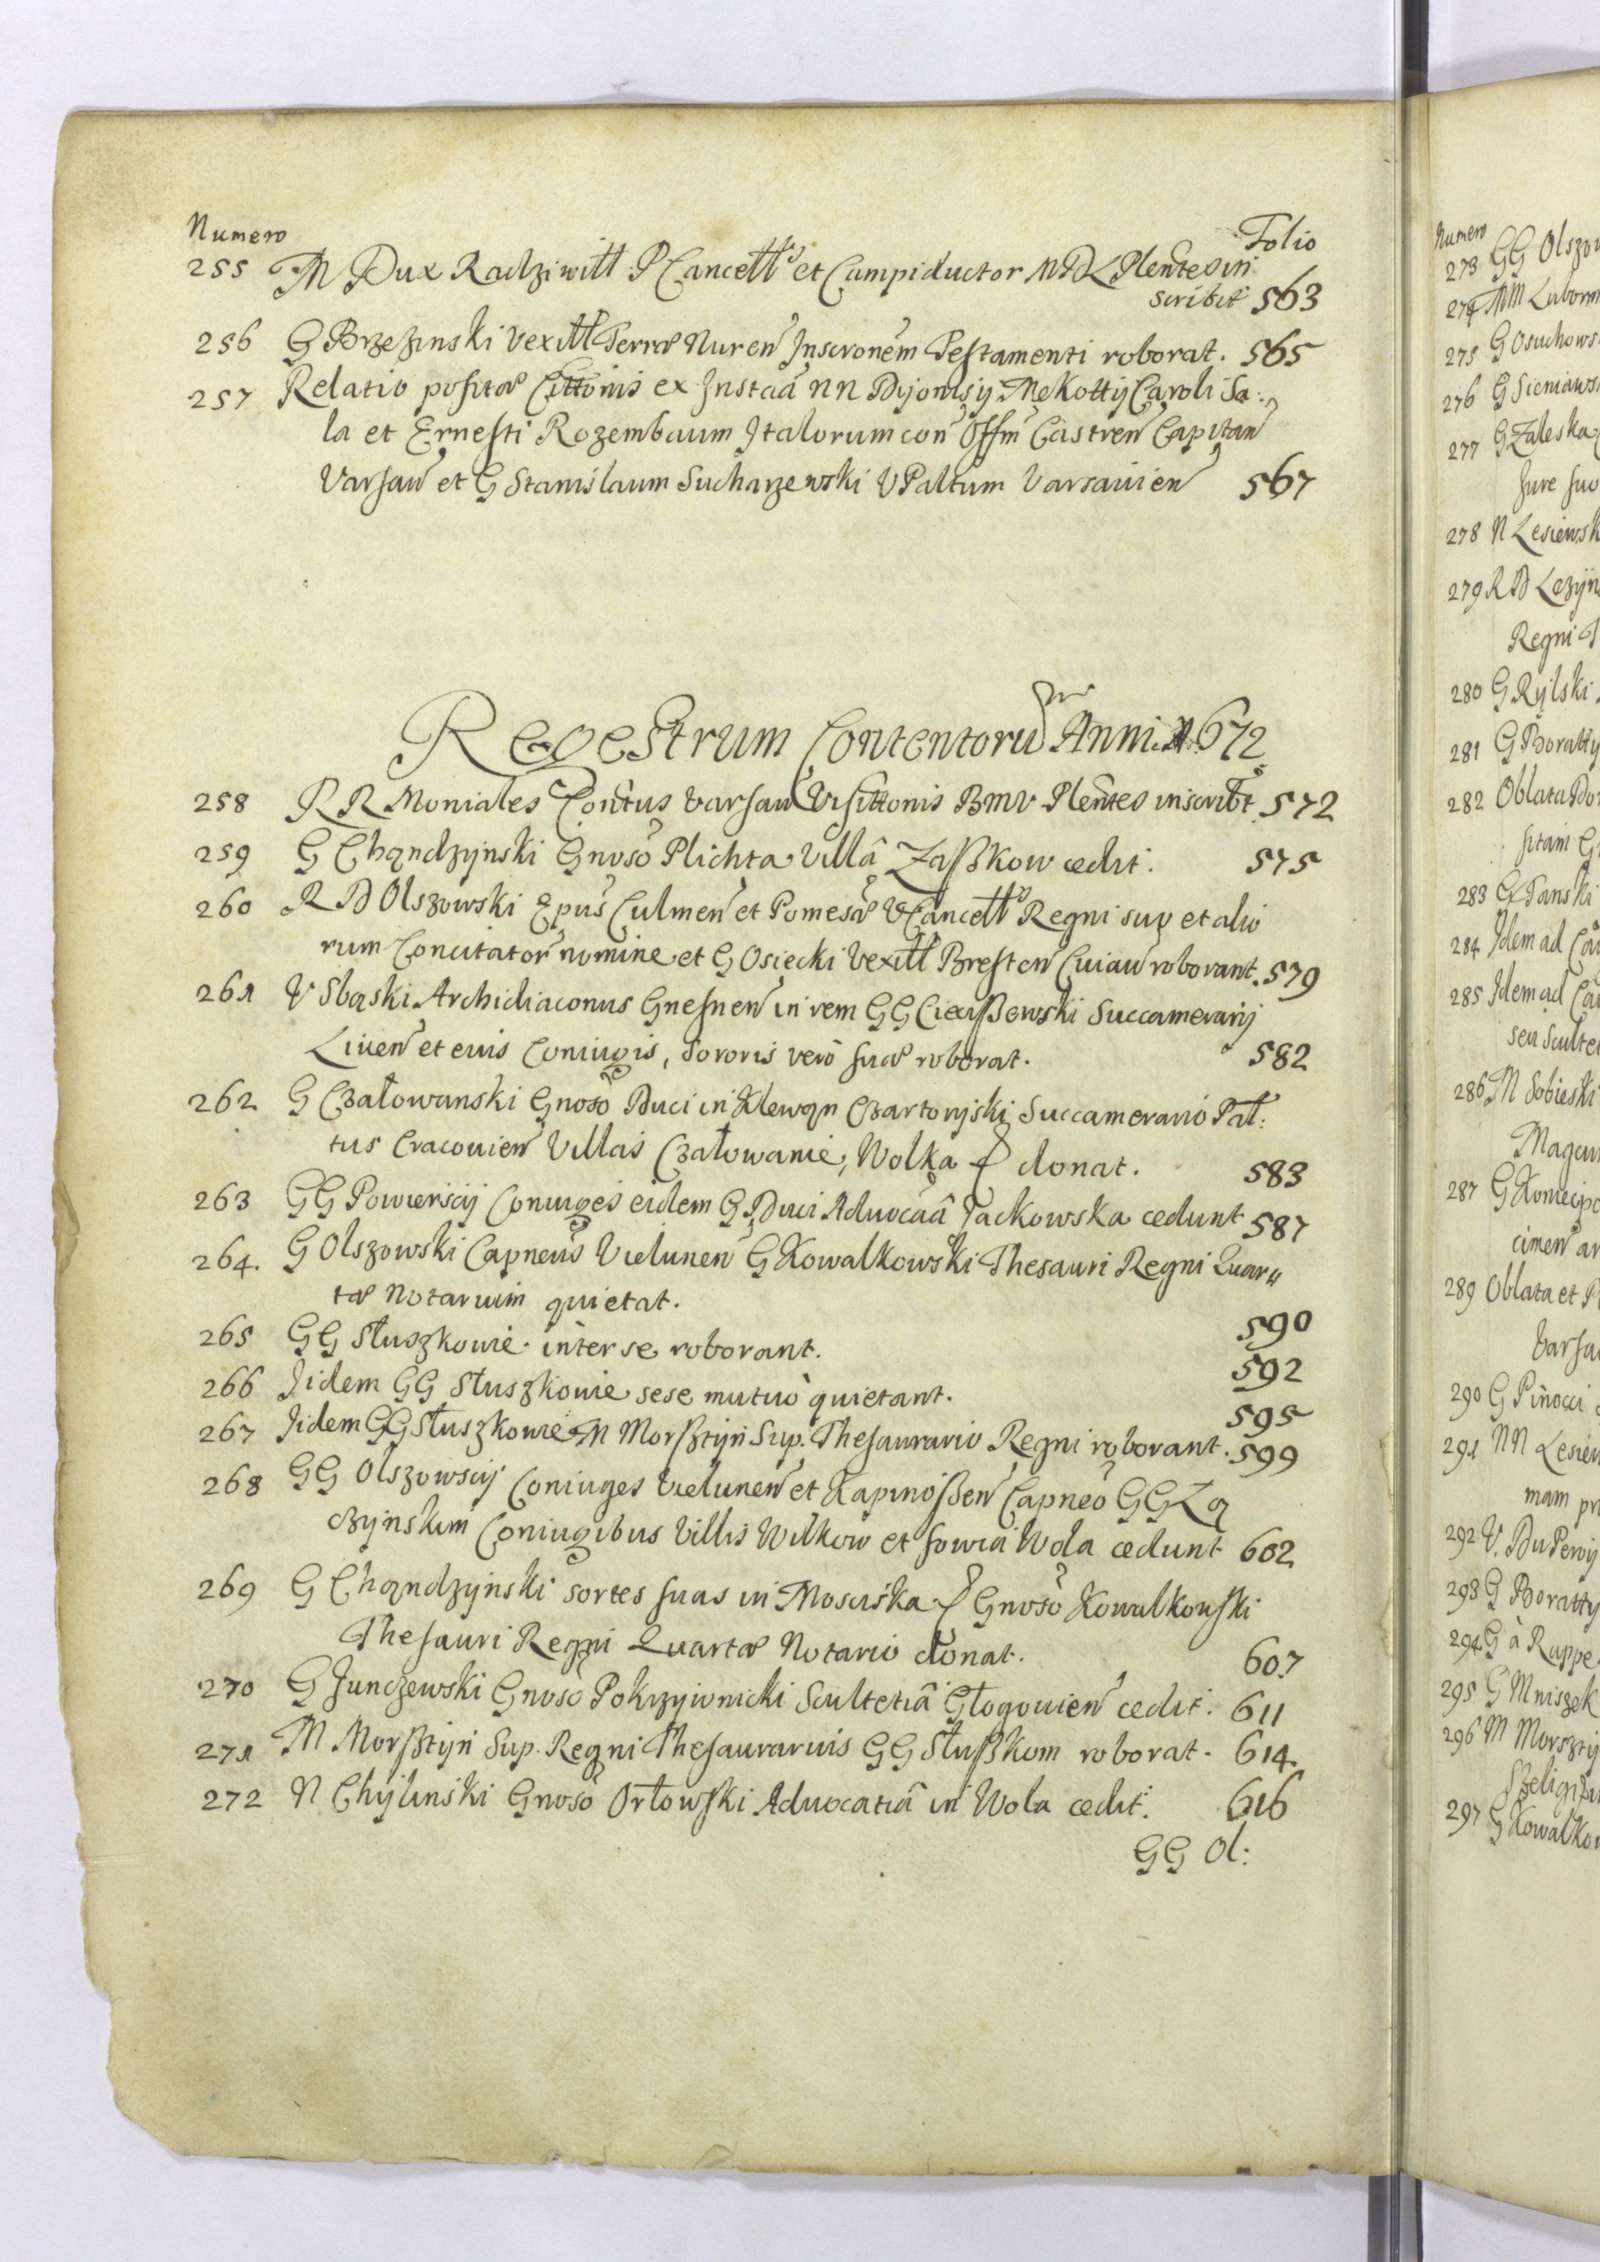 Numero
Folio
255 M Dux Radziwiłł P Cancell et Campiductor M D L Plentes in
scribit 563
256 G Brzezinski Vexill Terræ Nuren Inscronem Testamenti roborat. 565
257 Relatio positæ Cittonis ex Instãa NN Dijonisij Mekottij Caroli Sa:
la et Ernesti Rozembaum Italorum con Offm Castren Capitan
Varsaw et G Stanislaum Sucharzewski VPaltum Varsavien 567
Regestrum Contentoru Anni 1672
258 RR Moniales Contus Varsau Visittonis BMV Plentes inscribt. 572
259 G Chądzynski Gnoso Plichta Villâ Zaßkow cedit. 575
260 R D Olszowski Epus Culmen et Pomesa VCancell Regni suo et alio
rum Concitator nomine et G Osiecki Vexill Bresten Cuiau roborant. 579
261 V Sbąski Archidiaconus Gnesnen in rem GG Ciecißewski Succamerarij
Liuen et eius Coniugis, Sororis vero suæ roborat. 582
262 G Czałowanski Gnoso Duci in Klewąn Czartoryiski Succamerario Pał:
tus Cracouien Villas Czałowanie, Wolka donat. 583
263 GG Powierscij Coniuges eidem G Duci Aduocãâ Jackowska cedunt 587
264. G Olszowski Capneus Vielunen G Kowalkowski Thesauri Regni Quar
tæ Notarium quietat. 590
265 GG Słuszkowie inter se roborant. 592
266 Iidem GG Słuszkowie sese mutuo quietant. 595
267 Iidem GG Słuszkowie M Morßtijn Sup. Thesaurario Regni roborant. 599
268 GG Olszowscij Coniuges Vielunen et Kapinoßen Capneo GG Lą
czynskim Coniugibus Villis Wilkow et sowia Wola cedunt 602
269 G Chądzynski sortes suas in Mosciska Gnoso Kowalkowski
Thesauri Regni Quartæ Notario donat. 607
270 G Junczewski Gnoso Pokrzyionicki Scultetiâ Głogouien cedit. 611
271 M Morßtijn Sup. Regni Thesaurarius GG Słußkom roborat. 614
272 N Chijlinski Gnoso Orłowski Aduocatiâ in Wola cedit. 616
GG Ol:
Numero
273 GG Olszow
274 MM Lubom
275 G Osuchows
276 G Sieniaws
277 G Zaleska
Jure suo
278 N Lesiewsk
279 R D Lezijn
Regni
280 G Rijlski
281 G Boratty
282 Oblata Do
sitam G
283 G Panski
284 Idem ad Ca
285 Idem ad Ca
seu Sculte
286 M Sobieski
Magdu
287 G Koniecpo
cimen ar
289 Oblata et P
Varsa
290 G Pinocci
291 NN Lesiew
mam pr
292 V. Du Perij
293 G Boratty
294 G à Rappe
295 G Mniszek
296 M Morsztij
Szeligi
297 G Kowalkow